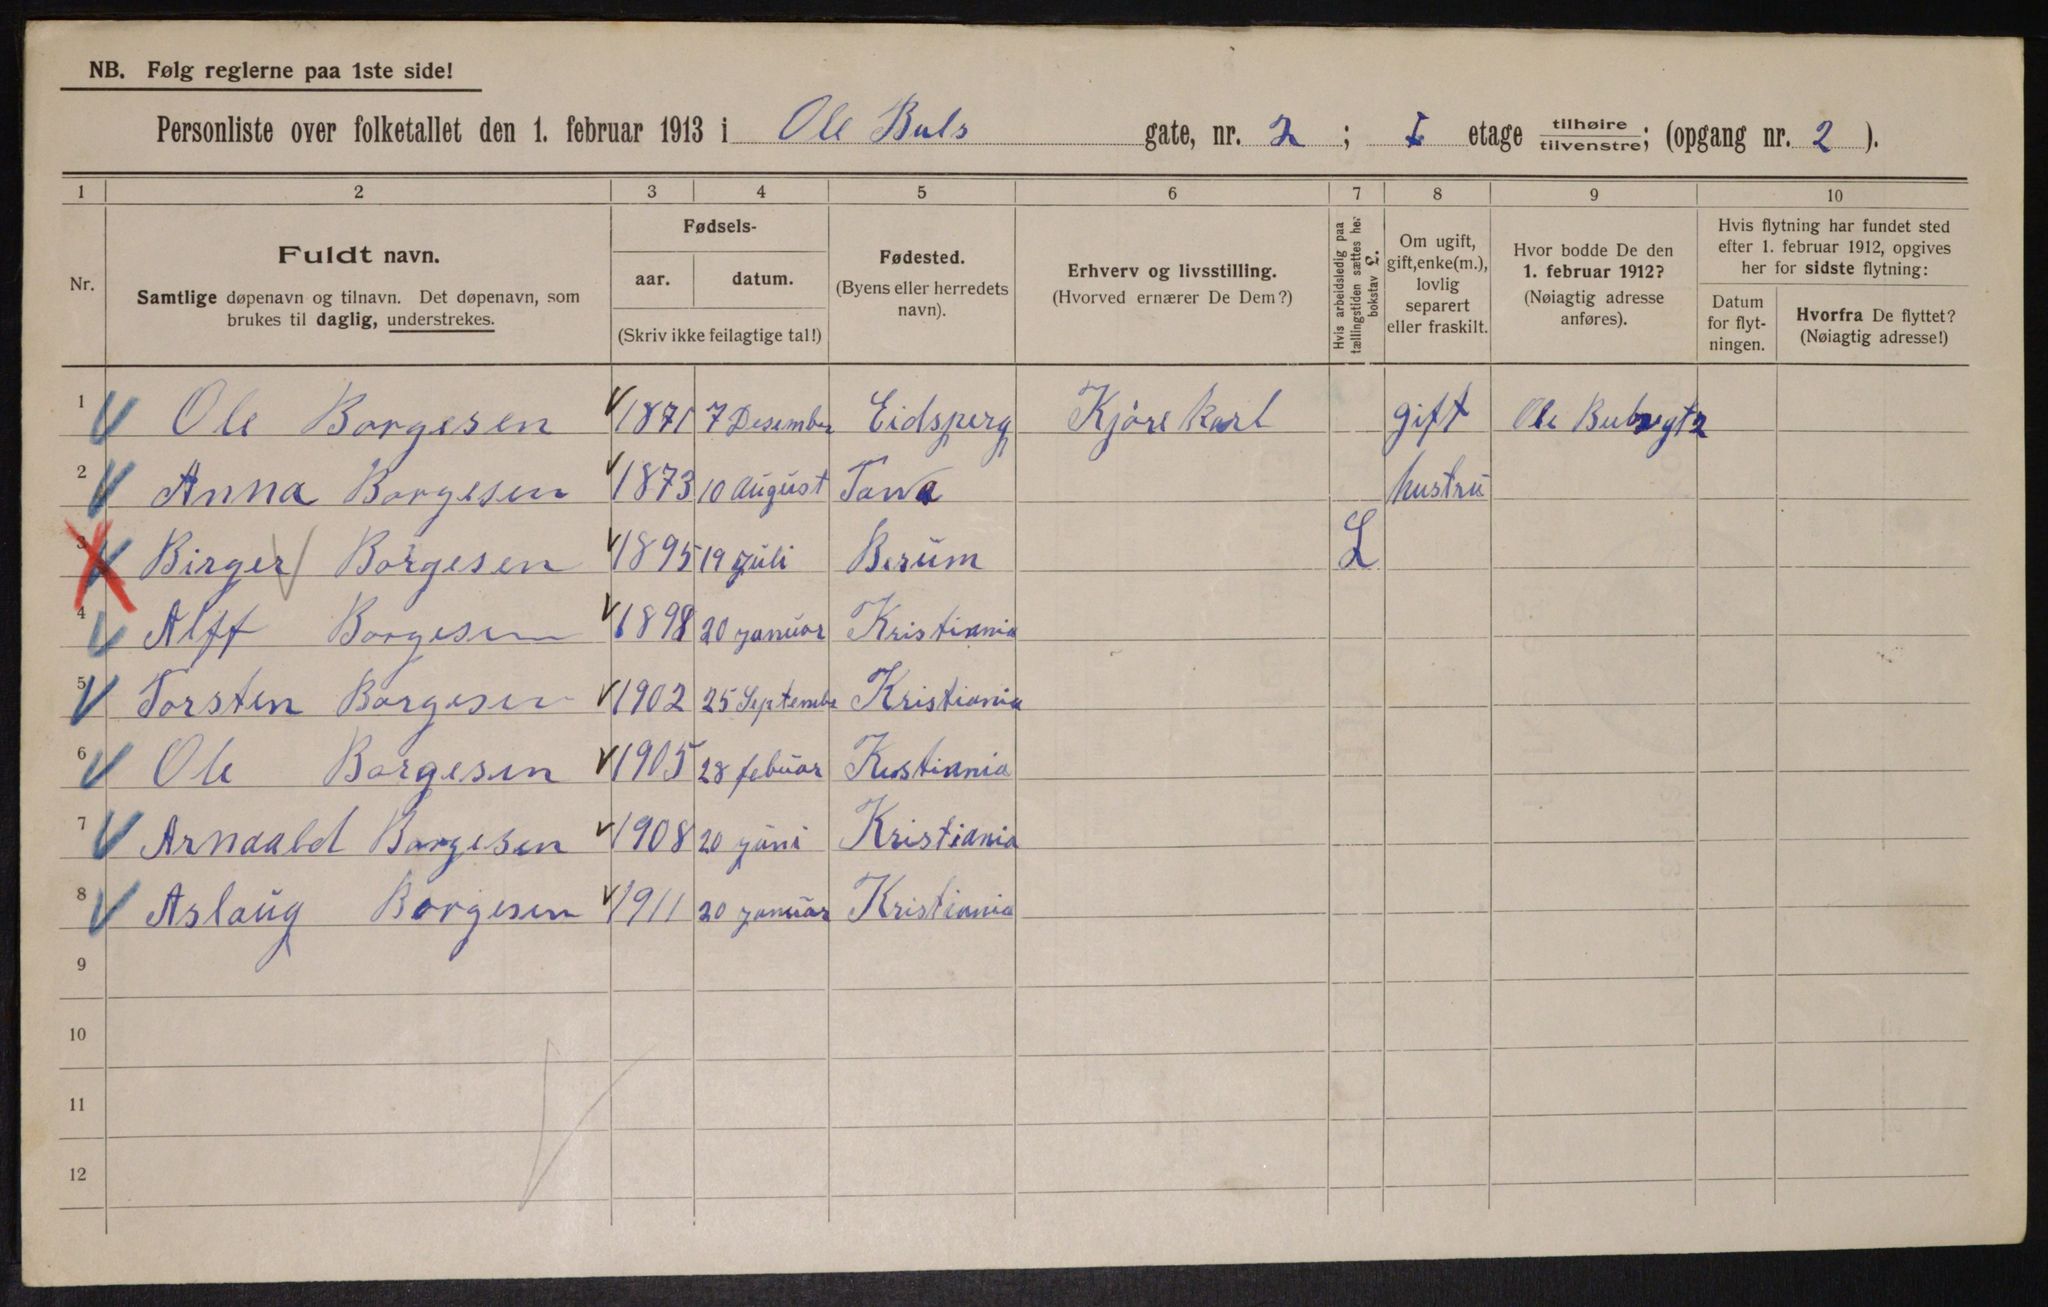 NB. Følg reglerne paa 1ste side!
Personliste over folketallet den 1. februar 1913 i Ole Buls gate, nr. 2 ; I etage tilhøire tilvenstre; (opgang nr. 2 ).
1 2 3 4 5 6 7 8 9 10
Nr.
Fuldt navn.
Samtlige døpenavn og tilnavn. Det døpenavn, som
brukes til daglig, understrekes.
Fødsels-
aar. datum.
(Skriv ikke feilagtige tal!)
Fødested.
(Byens eller herredets
navn).
Erhverv og livsstilling.
(Hvorved ernærer De Dem?)
Hvis arbeidsledig paa
tællingstiden sættes her
bokstav L.
Om ugift,
gift, enke(m.),
lovlig
separert
eller fraskilt.
Hvor bodde De den
1. februar 1912?
(Nøiagtig adresse
anføres).
Hvis flytning har fundet sted
efter 1. februar 1912, opgives
her for sidste flytning:
Datum
for flyt-
ningen.
Hvorfra De flyttet?
(Nøiagtig adresse!)
1 Ole Borgesen 1871 7 Desember Eidsperg Kjøre karl gift Ole Buls
2 Anna Borgesen 1873 10 august Tana hustru
3 Birger Borgesen 1895 19 juli Berum L
4 Alff Borgesen 1898 20 januar Kristiania
5 Torsten Borgesen 1902 25 Septembe Kristiania
6 Ole Borgesen 1905 28 febuar Kristiania
7 Arnaald Borgesen 1908 20 juni Kristiania
8 Aslaug Borgesen 1911 20 januar Kristiania
9
10
11
12